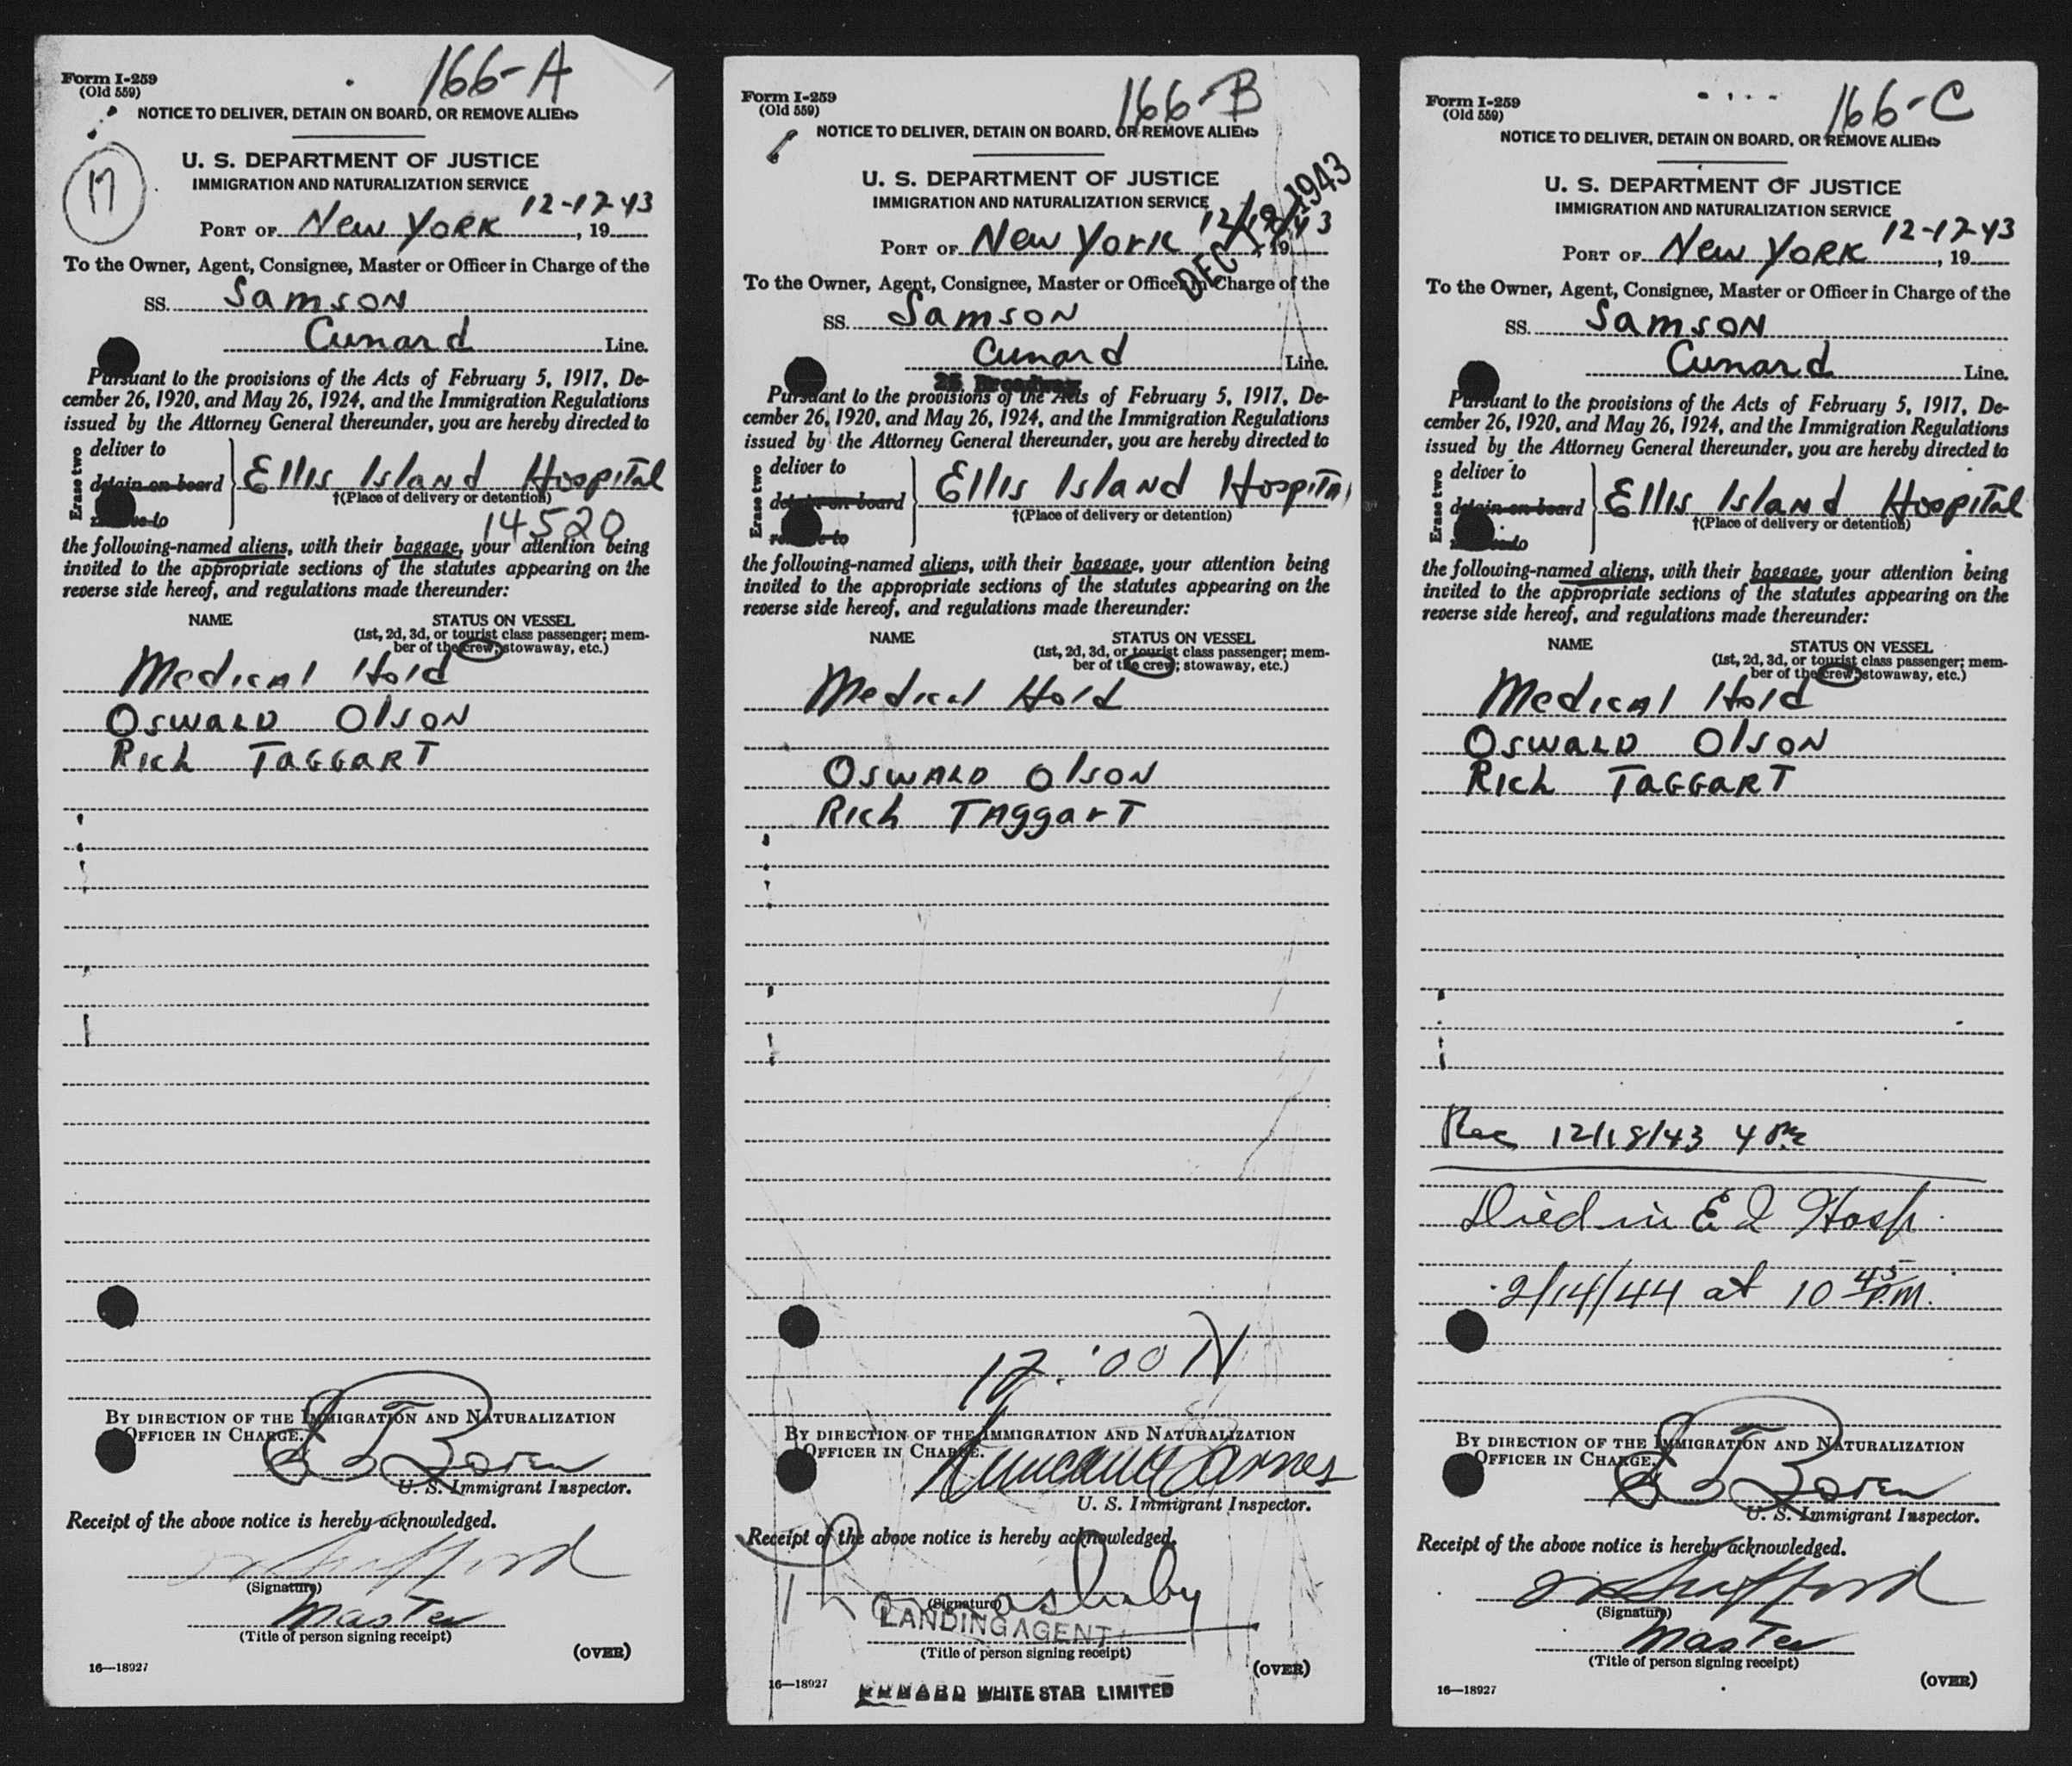 166-A
Form I-259
(Old 559)
NOTICE TO DELIVER, DETAIN ON BOARD, OR REMOVE ALIENS
17
U. S. DEPARTMENT OF JUSTICE
IMMIGRATION AND NATURALIZATION SERVICE
12-17-43
PORT OF New York, 19
To the Owner, Agent, Consignee, Master or Officer in Charge of the
SS. Samson
Cunard Line.
Pursuant to the provisions of the Acts of February 5, 1917, De-
cember 26, 1920, and May 26, 1924, and the Immigration Regulations
issued by the Attorney General thereunder, you are hereby directed to
Erase two
deliver to
detain on board
Ellis Island Hospital
†(Place of delivery or detention)
remove to
14520
the following-named aliens, with their baggage, your attention being
invited to the appropriate sections of the statutes appearing on the
reverse side hereof, and regulations made thereunder:
NAME STATUS ON VESSEL
(1st, 2d, 3d, or tourist class passenger; mem-
ber of the crew; stowaway, etc.)
Medical Hold
Oswald Olson
Rich Taggart
BY DIRECTION OF THE IMMIGRATION AND NATURALIZATION
OFFICER IN CHARGE.
U. S. Immigrant Inspector.
Receipt of the above notice is hereby acknowledged.
(Signature)
Master
(Title of person signing receipt)
(OVER)
16—18927
166-B
Form I-259
(Old 559)
NOTICE TO DELIVER, DETAIN ON BOARD, OR REMOVE ALIENS
U. S. DEPARTMENT OF JUSTICE
IMMIGRATION AND NATURALIZATION SERVICE
DEC 1943
PORT OF New York, 19
To the Owner, Agent, Consignee, Master or Officer in Charge of the
SS. Samson
Cunard Line.
25 Broadway
Pursuant to the provisions of the Acts of February 5, 1917, De-
cember 26, 1920, and May 26, 1924, and the Immigration Regulations
issued by the Attorney General thereunder, you are hereby directed to
Erase two
deliver to
detain on board
Ellis Island Hospital
†(Place of delivery or detention)
remove to
the following-named aliens, with their baggage, your attention being
invited to the appropriate sections of the statutes appearing on the
reverse side hereof, and regulations made thereunder:
NAME STATUS ON VESSEL
(1st, 2d, 3d, or tourist class passenger; mem-
ber of the crew; stowaway, etc.)
Medical Hold
Oswald Olson
Rich Taggart
12:00 N
BY DIRECTION OF THE IMMIGRATION AND NATURALIZATION
OFFICER IN CHARGE.
U. S. Immigrant Inspector.
Receipt of the above notice is hereby acknowledged.
(Signature)
LANDING AGENT
(Title of person signing receipt)
(OVER)
16—18927
CUNARD WHITE STAR LIMITED
166-C
Form I-259
(Old 559)
NOTICE TO DELIVER, DETAIN ON BOARD, OR REMOVE ALIENS
U. S. DEPARTMENT OF JUSTICE
IMMIGRATION AND NATURALIZATION SERVICE
12-17-43
PORT OF New York, 19
To the Owner, Agent, Consignee, Master or Officer in Charge of the
SS. Samson
Cunard Line.
Pursuant to the provisions of the Acts of February 5, 1917, De-
cember 26, 1920, and May 26, 1924, and the Immigration Regulations
issued by the Attorney General thereunder, you are hereby directed to
Erase two
deliver to
detain on board
Ellis Island Hospital
†(Place of delivery or detention)
remove to
the following-named aliens, with their baggage, your attention being
invited to the appropriate sections of the statutes appearing on the
reverse side hereof, and regulations made thereunder:
NAME STATUS ON VESSEL
(1st, 2d, 3d, or tourist class passenger; mem-
ber of the crew; stowaway, etc.)
Medical Hold
Oswald Olson
Rich Taggart
Rec 12/18/43 4 PM
Died in E I Hosp.
2/14/44 at 10 45 P.M.
BY DIRECTION OF THE IMMIGRATION AND NATURALIZATION
OFFICER IN CHARGE.
U. S. Immigrant Inspector.
Receipt of the above notice is hereby acknowledged.
(Signature)
Master
(Title of person signing receipt)
(OVER)
16—18927